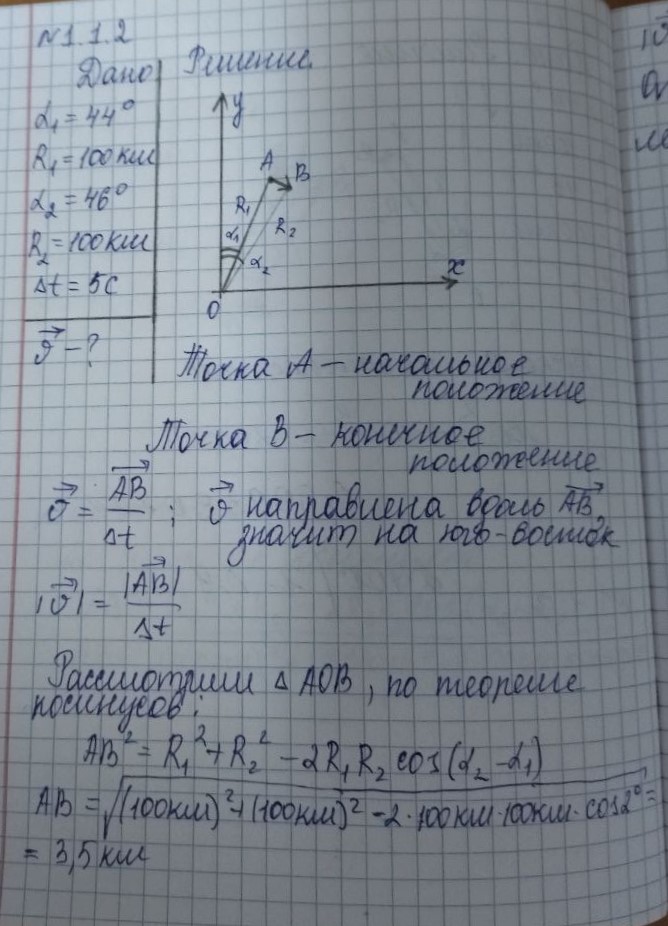 N 1.1.2
Дано Решение
α₁ = 44°
R₁ = 100 км
α₂ = 46°
R₂ = 100 км
Δt = 5 с
v⃗ – ?
y
A
B
R₁
R₂
α₁
α₂
x
O
Точка A – начальное
положение
Точка B – конечное
положение
v⃗ = AB⃗ / Δt ; v⃗ направлена вдоль AB⃗,
значит на юго-восток
|v⃗| = |AB⃗| / Δt
Рассмотрим Δ AOB, по теореме
косинусов:
AB² = R₁² + R₂² – 2R₁R₂ cos(α₂ – α₁)
AB = √((100км)² + (100км)² – 2 · 100км · 100км · cos2°) =
= 3,5 км
|v⃗